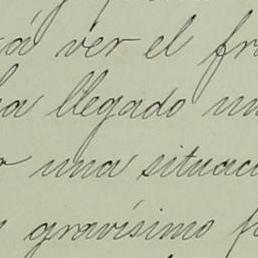 á ver el fr
ha llegado un
una situac
gravísimo f